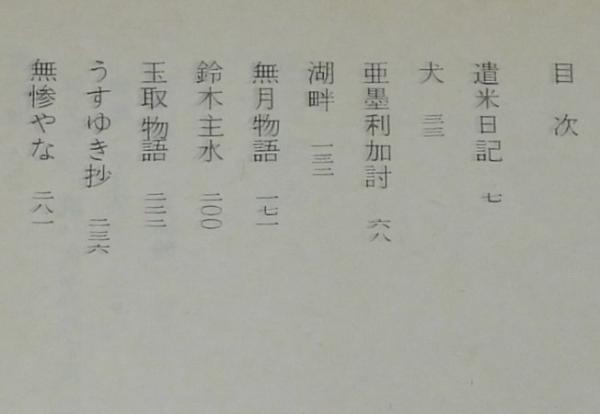 目次
遣米日記 七
犬 三三
亜墨利加討 六八
湖畔 一三二
無月物語 一七一
鈴木主水 二〇〇
玉取物語 二二二
うすゆき抄 二三六
無惨やな 二八一